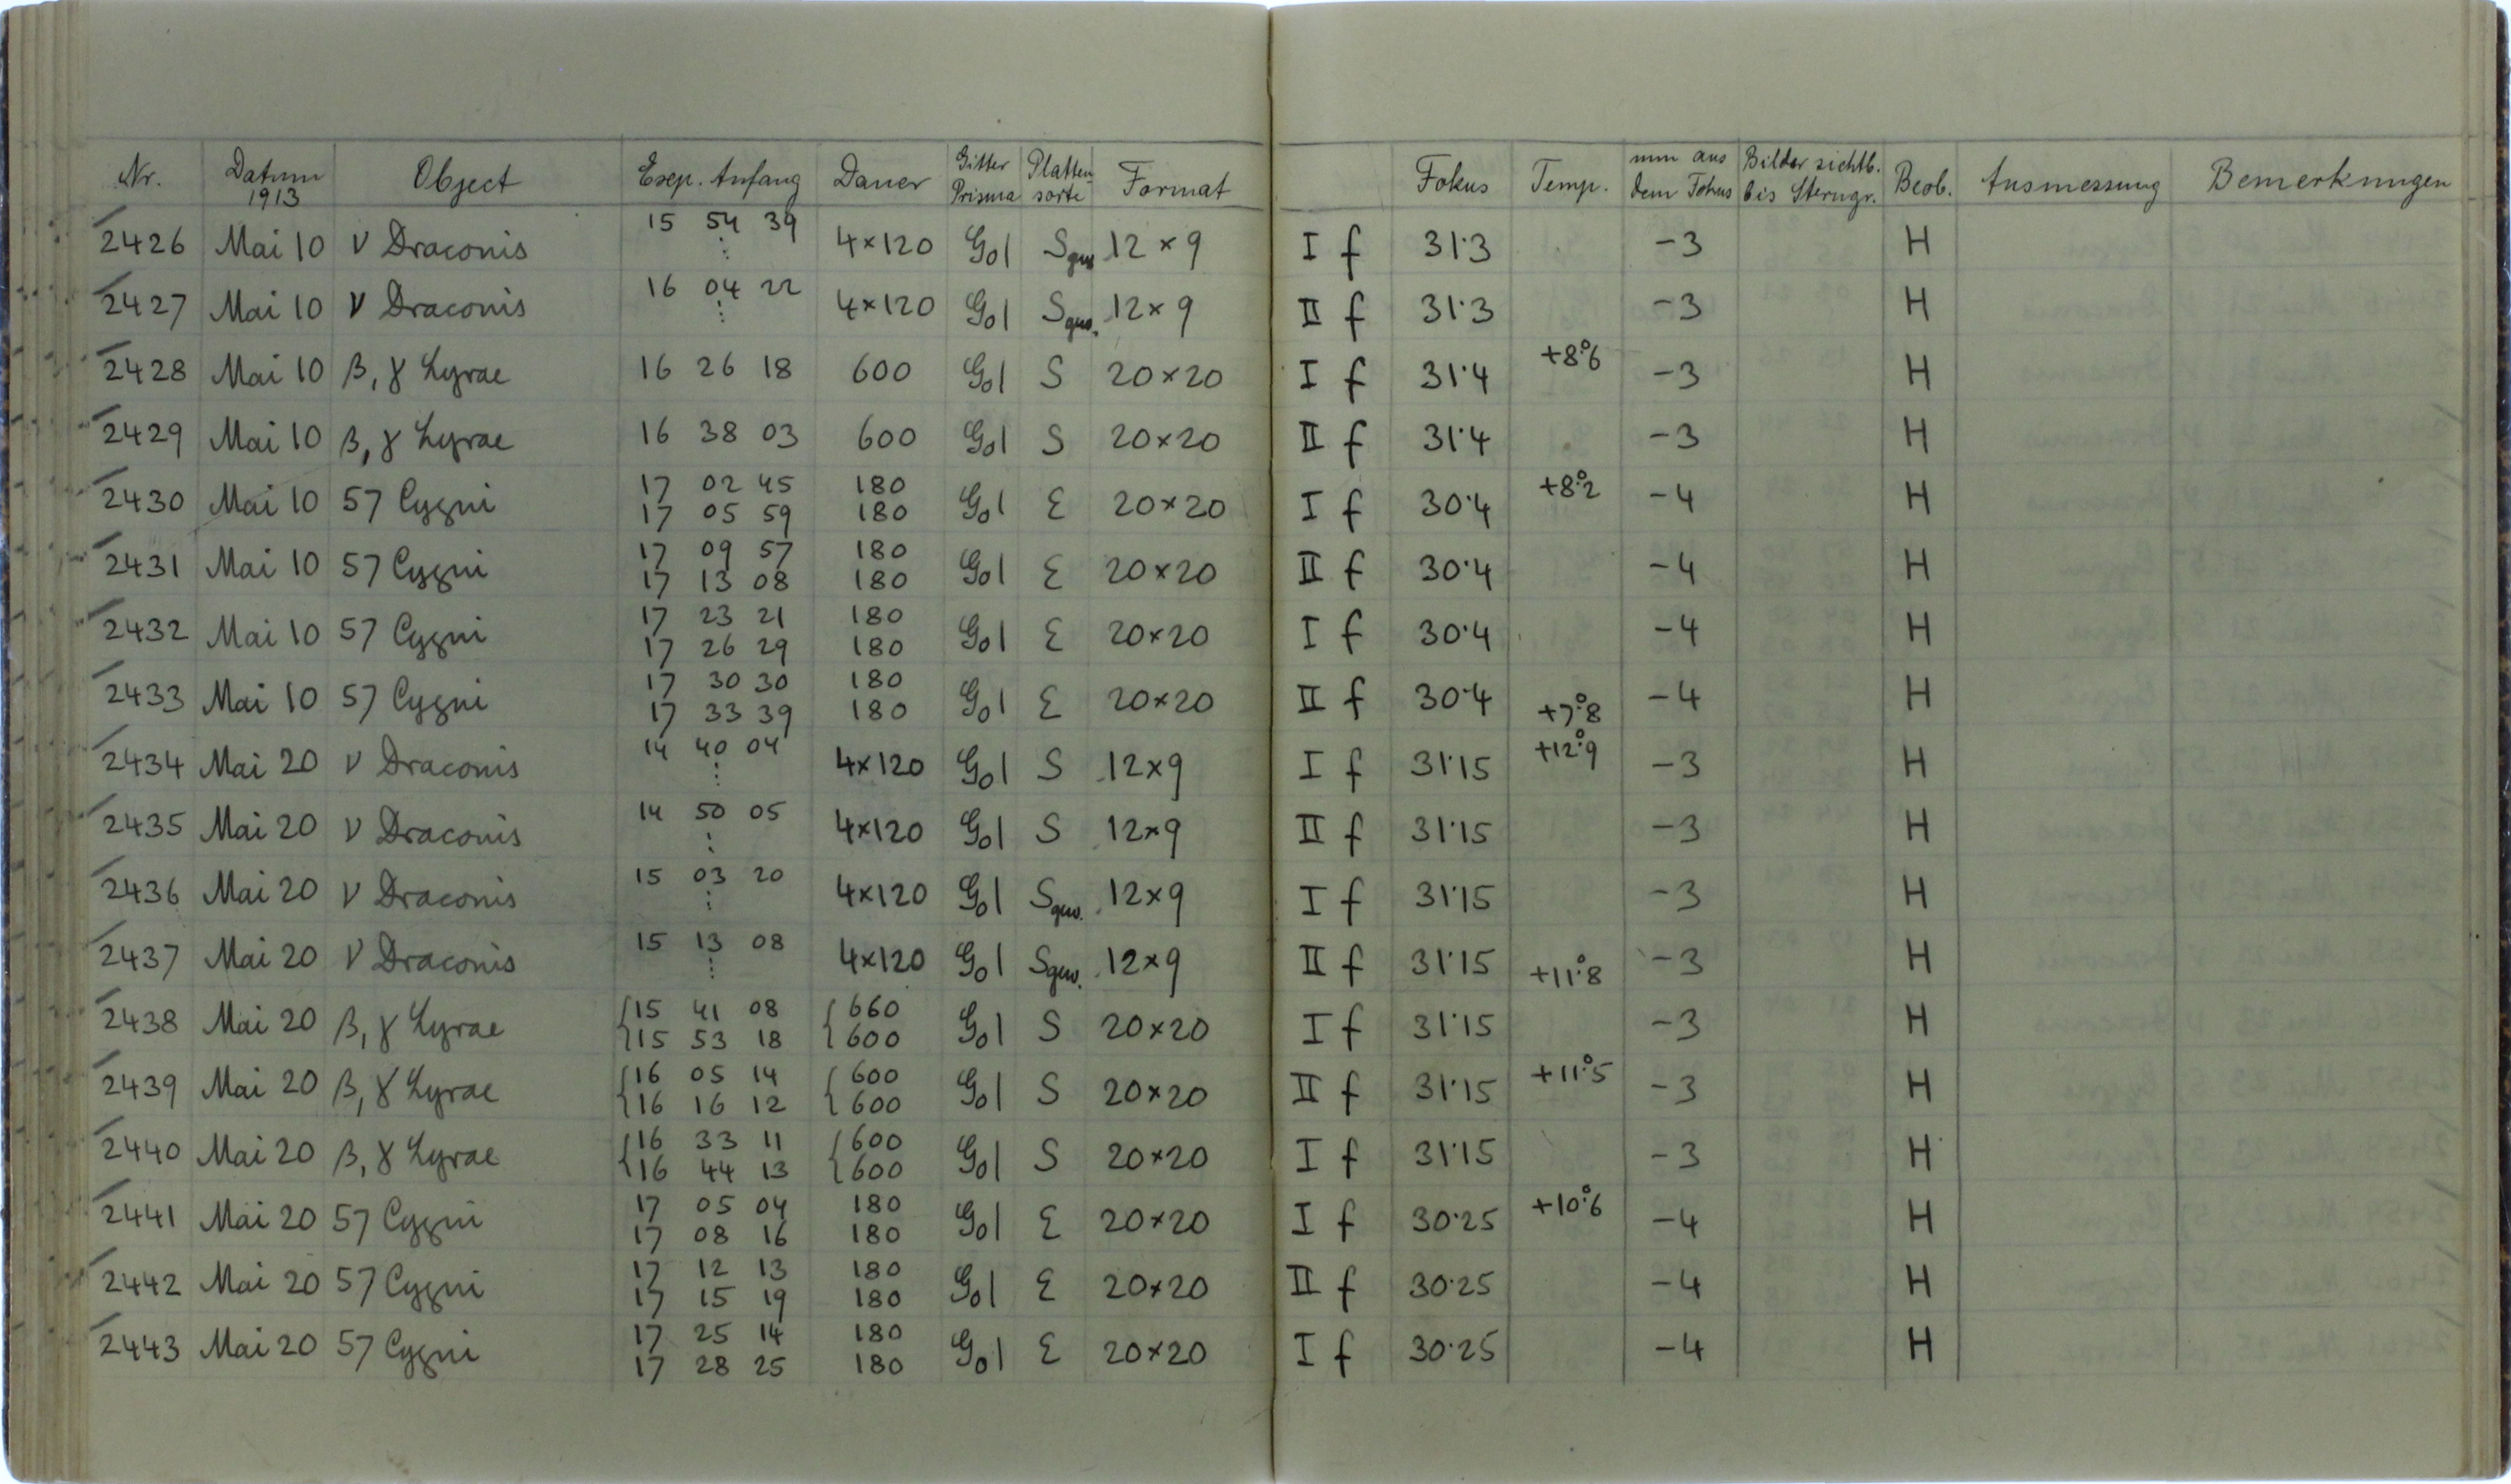 Nr. Datum 1913 Object Exp. Anfang Dauer Gitter Prisma Platten sorte Format Fokus Temp. mm aus dem Fokus Bilder sichtb. bis Sterngr. Beob. Ausmessung Bemerkungen
2426 Mai 10 ν Draconis 15 54 39 ⋮ 4×120 G01 S gew. 12×9 I f 31·3 -3 H
2427 Mai 10 ν Draconis 16 04 22 ⋮ 4×120 G01 S gew. 12×9 II f 31·3 -3 H
2428 Mai 10 β, γ Lyrae 16 26 18 600 G01 S 20×20 I f 31·4 +8°.6 -3 H
2429 Mai 10 β, γ Lyrae 16 38 03 600 G01 S 20×20 II f 31·4 -3 H
2430 Mai 10 57 Cygni 17 02 45 180 G01 E 20×20 I f 30·4 +8°.2 -4 H
17 05 59 180
2431 Mai 10 57 Cygni 17 09 57 180 G01 E 20×20 II f 30·4 -4 H
17 13 08 180
2432 Mai 10 57 Cygni 17 23 21 180 G01 E 20×20 I f 30·4 -4 H
17 26 29 180
2433 Mai 10 57 Cygni 17 30 30 180 G01 E 20×20 II f 30·4 +7°.8 -4 H
17 33 39 180
2434 Mai 20 ν Draconis 14 40 04 ⋮ 4×120 G01 S 12×9 I f 31·15 +12°.9 -3 H
2435 Mai 20 ν Draconis 14 50 05 ⋮ 4×120 G01 S 12×9 II f 31·15 -3 H
2436 Mai 20 ν Draconis 15 03 20 ⋮ 4×120 G01 S gew. 12×9 I f 31·15 -3 H
2437 Mai 20 ν Draconis 15 13 08 ⋮ 4×120 G01 S gew. 12×9 II f 31·15 +11°.8 -3 H
2438 Mai 20 β, γ Lyrae {15 41 08 {660 G01 S 20×20 I f 31·15 -3 H
15 53 18 600
2439 Mai 20 β, γ Lyrae {16 05 14 {600 G01 S 20×20 II f 31·15 +11°.5 -3 H
16 16 12 600
2440 Mai 20 β, γ Lyrae {16 33 11 {600 G01 S 20×20 I f 31·15 -3 H
16 44 13 600
2441 Mai 20 57 Cygni 17 05 04 180 G01 E 20×20 I f 30·25 +10°.6 -4 H
17 08 16 180
2442 Mai 20 57 Cygni 17 12 13 180 G01 E 20×20 II f 30·25 -4 H
17 15 19 180
2443 Mai 20 57 Cygni 17 25 14 180 G01 E 20×20 I f 30·25 -4 H
17 28 25 180